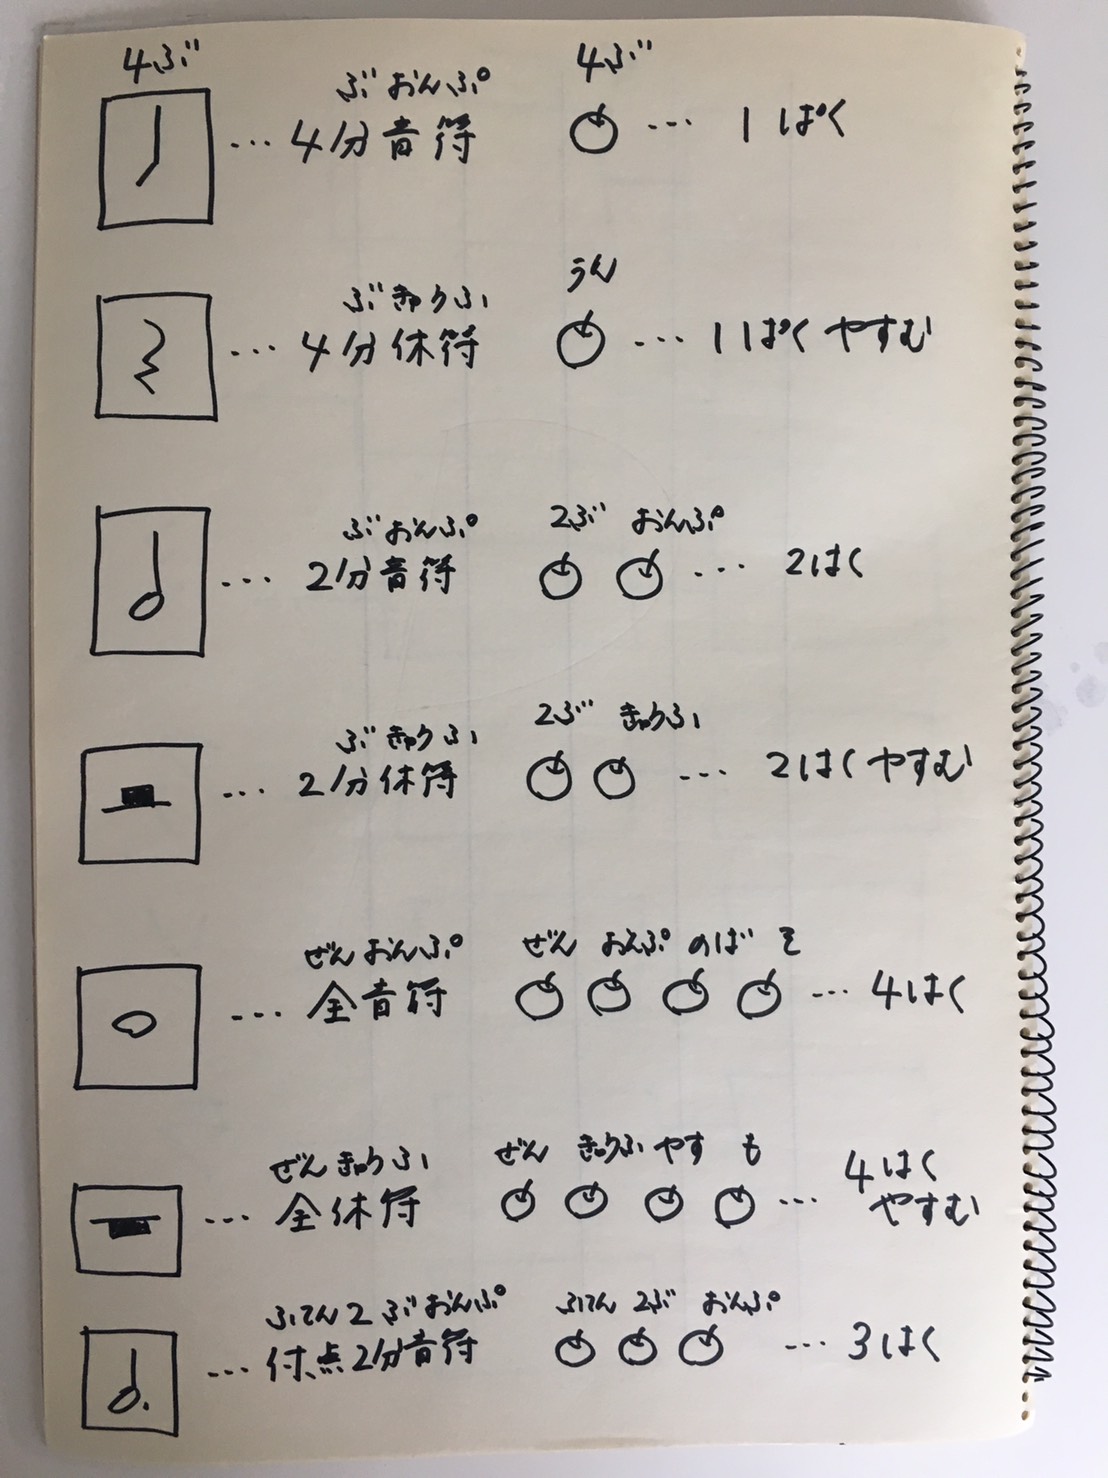 4ぶ ぶおんぷ 4ぶ
…4分音符 … 1ぱく
ぶきゅうふ うん
…4分休符 … 1ぱくやすむ
ぶおんぷ 2ぶ おんぷ
…2分音符 … 2はく
ぶきゅうふ 2ぶ きゅうふ
…2分休符 … 2はくやすむ
ぜんおんぷ ぜん おんぷ のば そ
…全音符 … 4はく
ぜんきゅうふ ぜん きゅうふ やす も 4はく
…全休符 … やすむ
ふてん2ぶおんぷ ふてん 2ぶ おんぷ
…付点2分音符 … 3はく